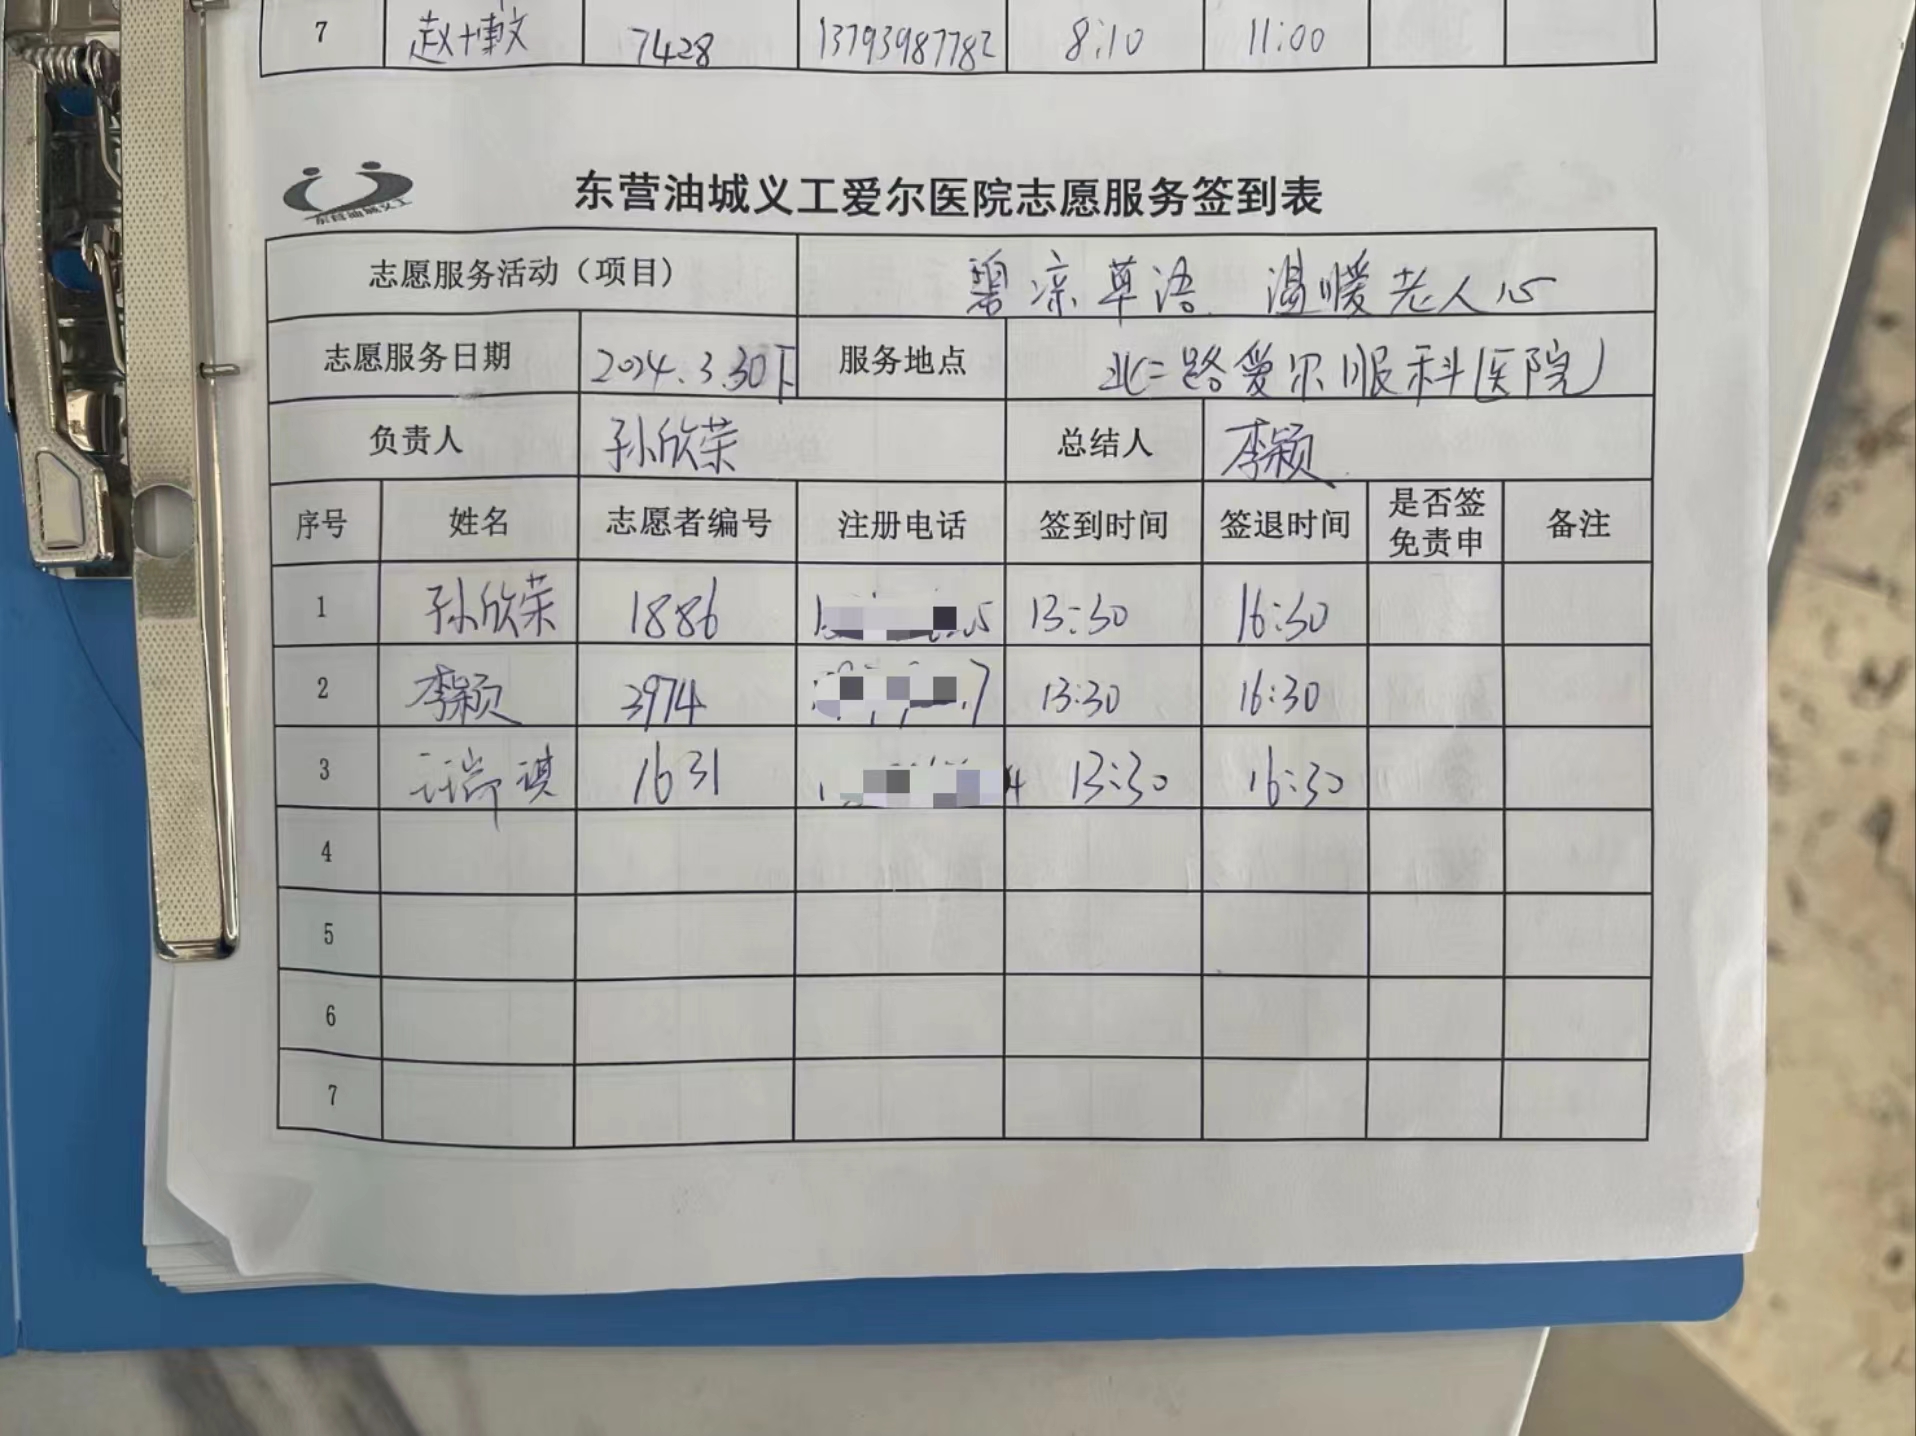 7 赵博文 7428 13793987782 8:10 11:00
东营油城义工
东营油城义工爱尔医院志愿服务签到表
志愿服务活动（项目） 碧凉草语 温暖老人心
志愿服务日期 2024.3.30下 服务地点 北二路爱尔眼科医院
负责人 孙欣荣 总结人 李颖
序号 姓名 志愿者编号 注册电话 签到时间 签退时间 是否签免责申 备注
1 孙欣荣 1886 13:30 16:30
2 李颖 3974 13:30 16:30
3 汪瑞琪 1631 13:30 16:30
4
5
6
7